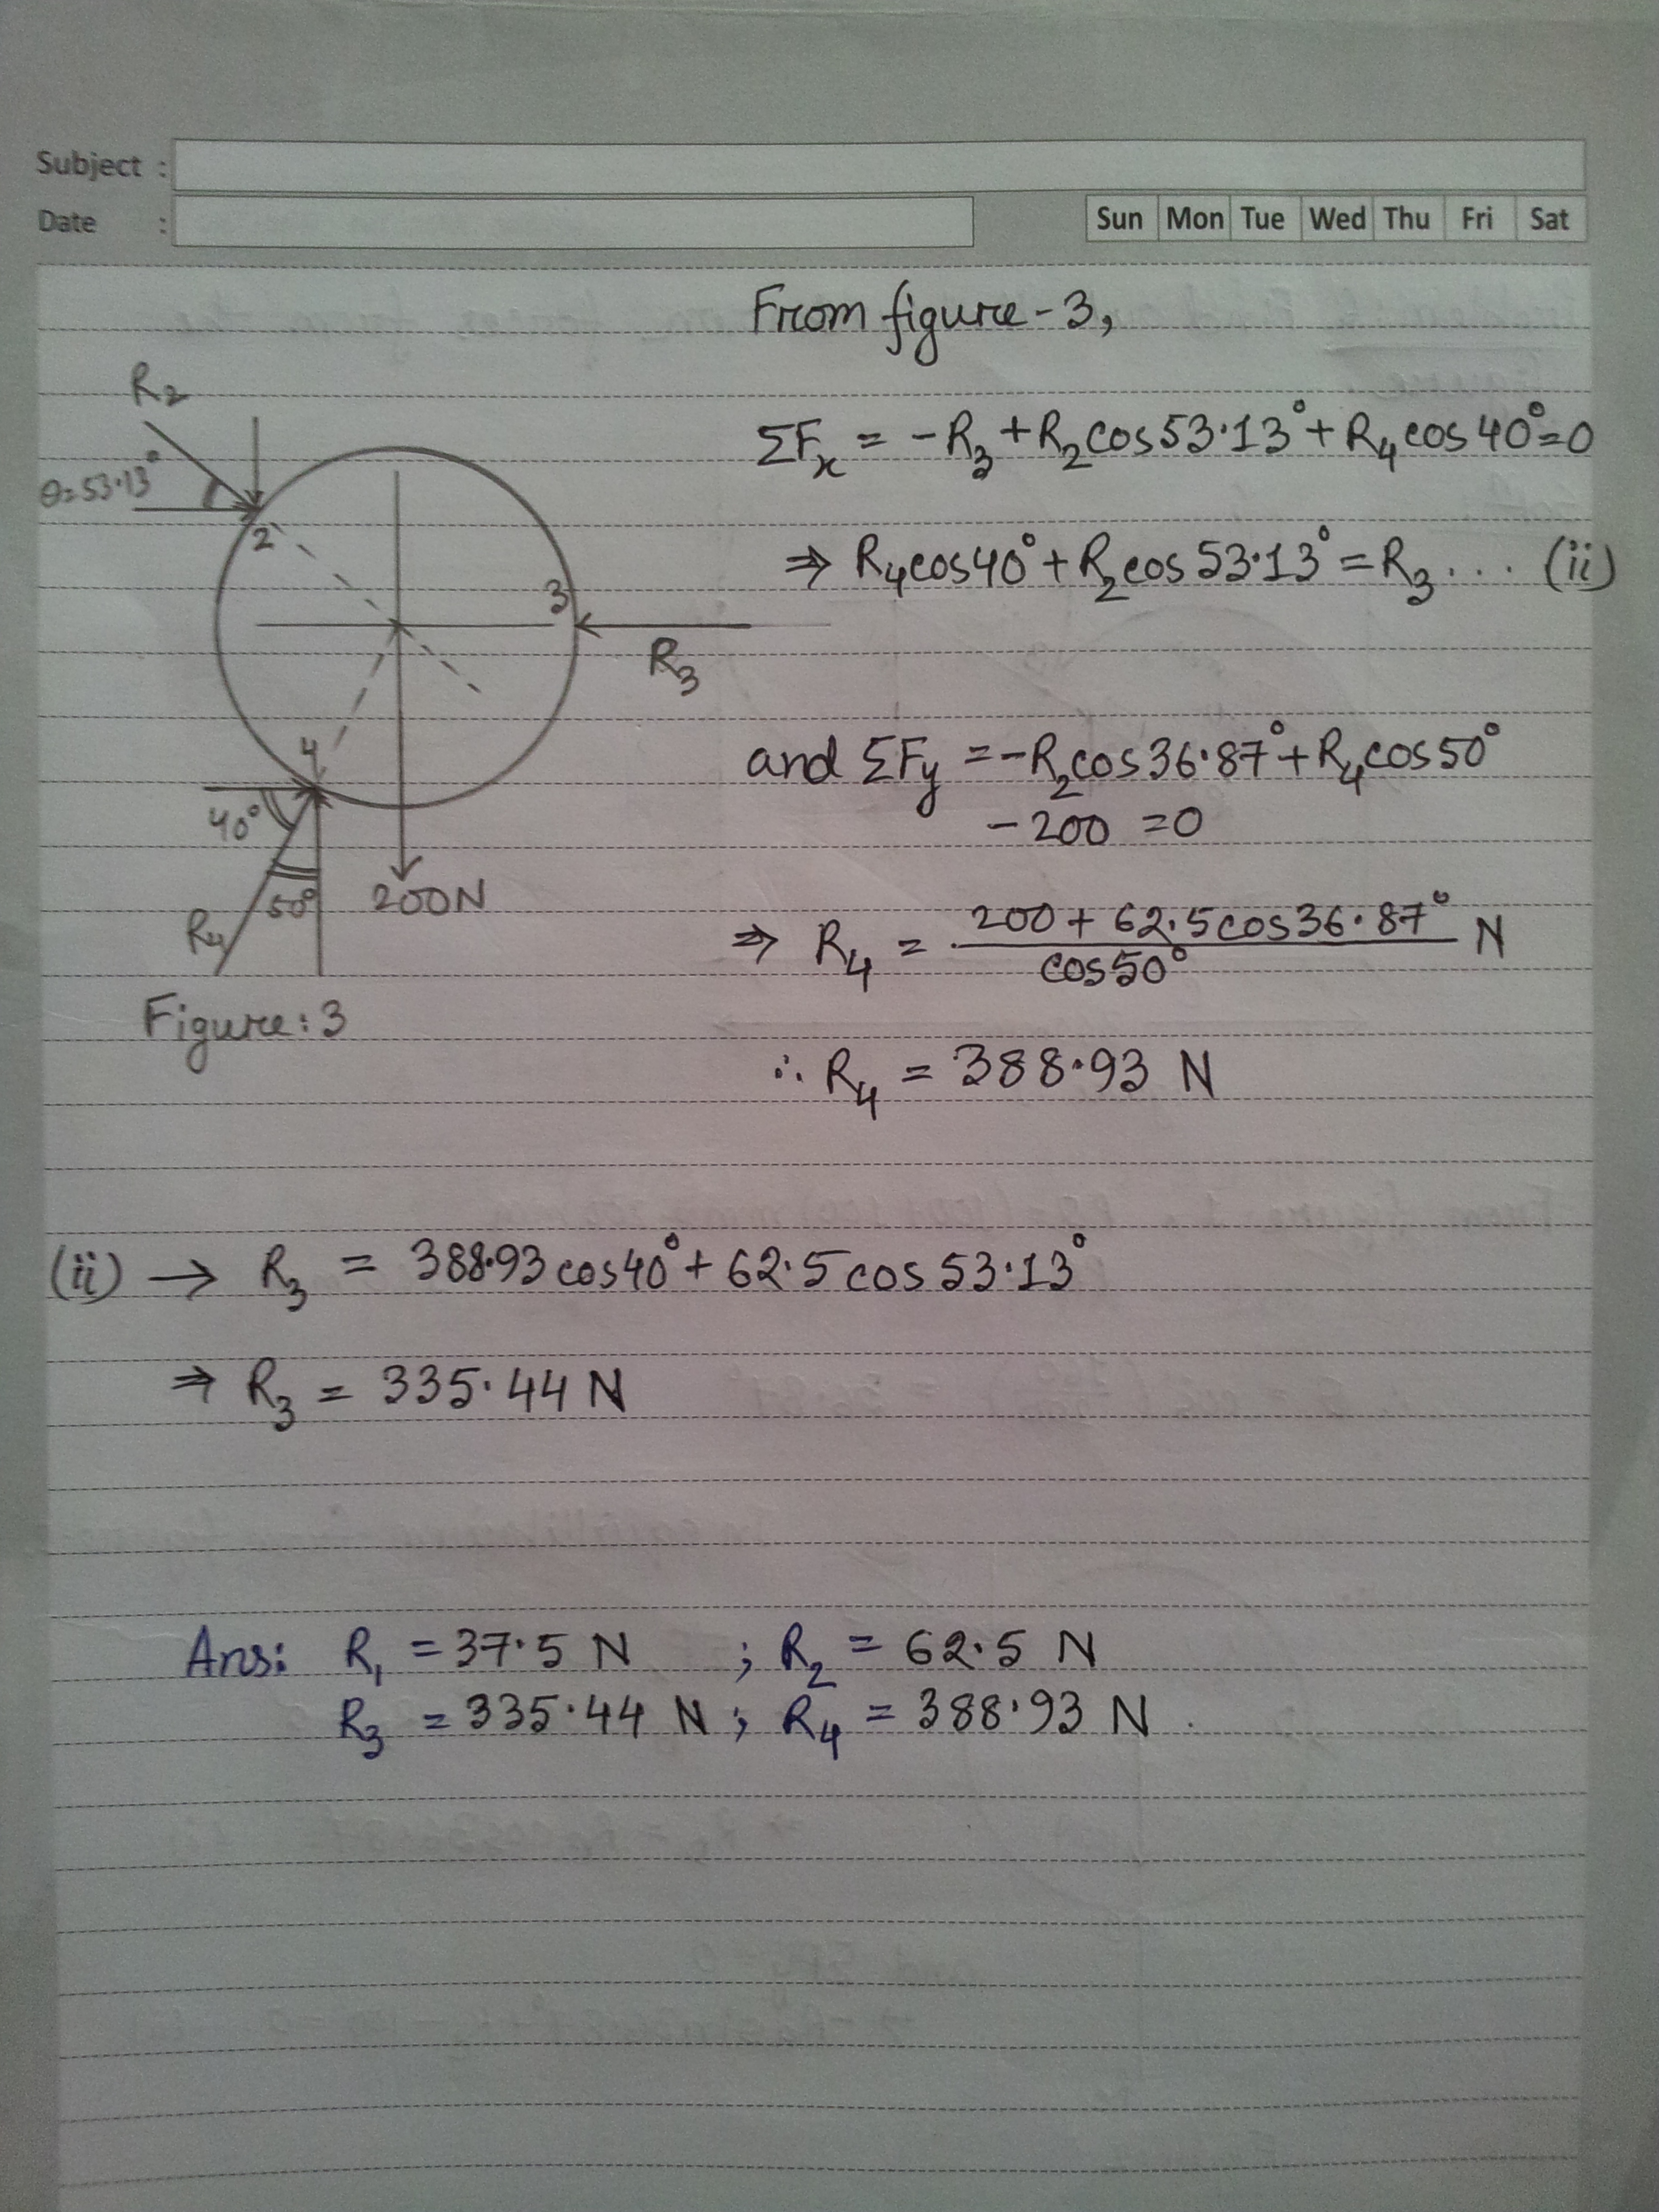 Subject :
Date :
Sun Mon Tue Wed Thu Fri Sat
From figure-3,
R₂
θ=53.13°
2
3
R₃
4
40°
50°
R₄
200N
Figure: 3
ΣFₓ = -R₃ + R₂cos53.13° + R₄cos40° = 0
⇒ R₄cos40° + R₂cos53.13° = R₃ ... (ii)
and ΣFy = -R₂cos36.87° + R₄cos50°
- 200 = 0
⇒ R₄ = (200 + 62.5cos36.87°) / cos50° N
∴ R₄ = 388.93 N
(ii) → R₃ = 388.93cos40° + 62.5cos53.13°
⇒ R₃ = 335.44 N
Ans: R₁ = 37.5 N ; R₂ = 62.5 N
R₃ = 335.44 N ; R₄ = 388.93 N .